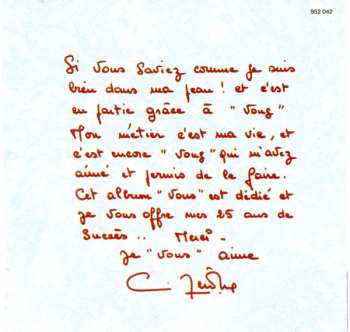 952 042
Si vous saviez comme je suis
bien dans ma peau ! et c'est
en partie grâce à "vous"
Mon métier c'est ma vie, et
c'est encore "vous" qui m'avez
aimé et permis de le faire.
Cet album "vous" est dédié et
je vous offre mes 25 ans de
Succès .. Merci -
je "vous" aime
C. Jérôme